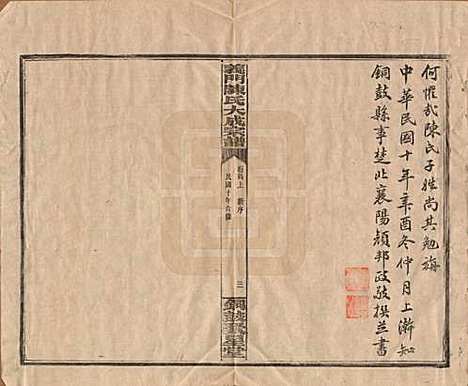 何惧哉陳氏子姓尚其勉旃
中華民國十年辛酉冬仲月上澣知
銅鼓縣事楚北襄陽顏邦政敬撰並書
義門陳氏大成宗譜
卷首上 新序
民國十年合修
三
銅鼓聚星堂